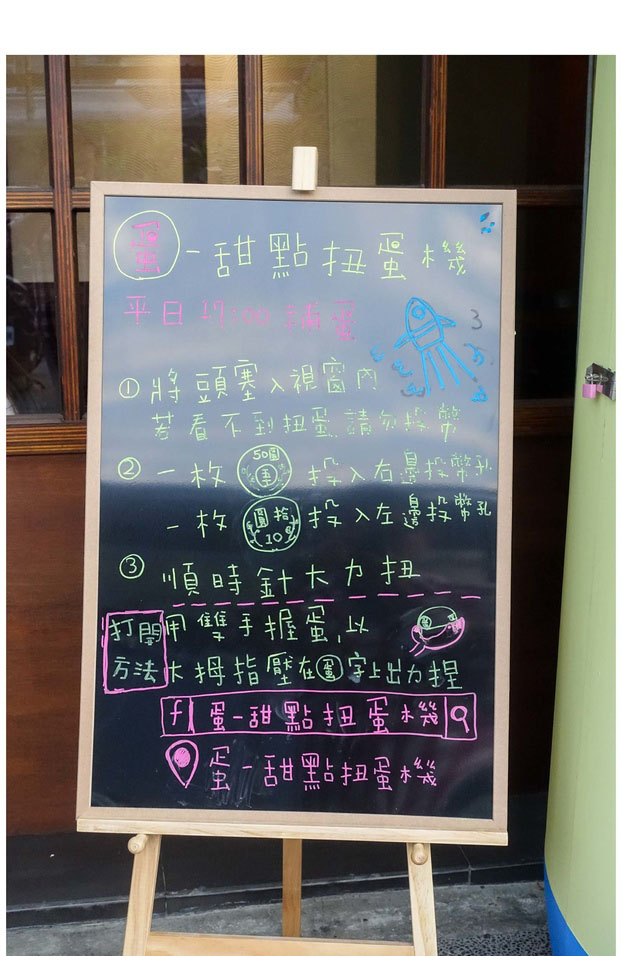 蛋-甜點扭蛋機
平日 17:00 補蛋
① 將頭塞入視窗內
若看不到扭蛋,請勿投幣
② 一枚 50圓 五 投入右邊投幣孔
一枚 圓拾 10 投入左邊投幣孔
③ 順時針大力扭
打開方法 用雙手握蛋,以
大拇指壓在蛋字上出力捏
f 蛋-甜點扭蛋機
蛋-甜點扭蛋機